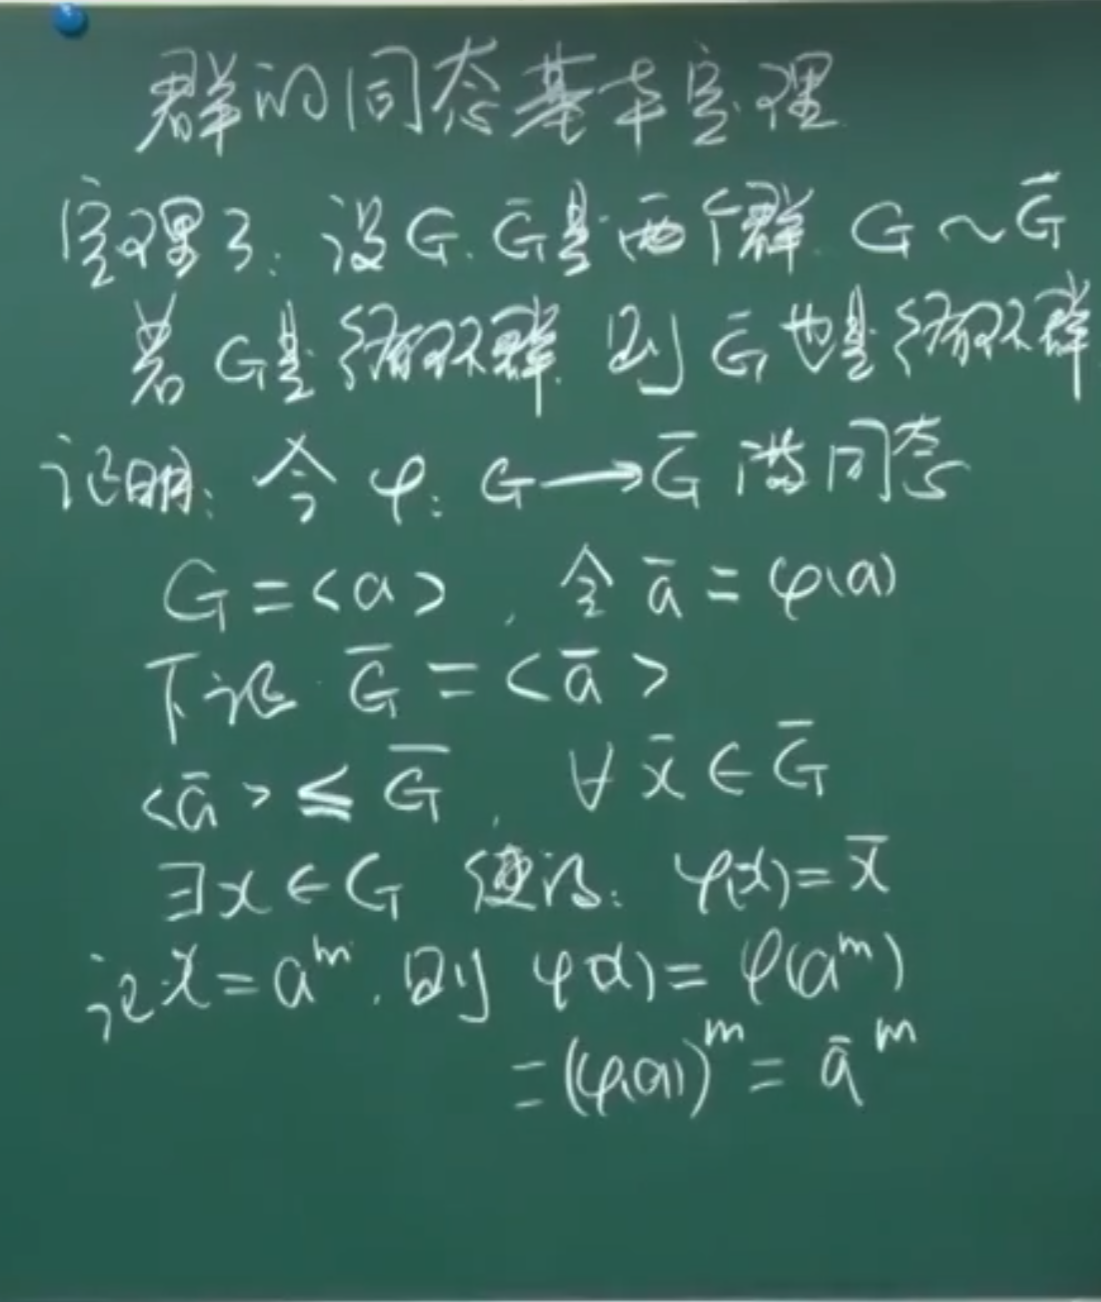 群的同态基本定理
定理3. 设G. Ḡ是两个群. G ~ Ḡ
若 G是循环群. 则 Ḡ 也是循环群
证明: 令 φ: G ⟶ Ḡ 满同态
G = <a> , 令 ā = φ(a)
下证 Ḡ = <ā>
<ā> ≤ Ḡ , ∀ x̄ ∈ Ḡ
∃x ∈ G 使得: φ(x) = x̄
记 x = aᵐ , 则 φ(x) = φ(aᵐ)
= (φ(a))ᵐ = āᵐ